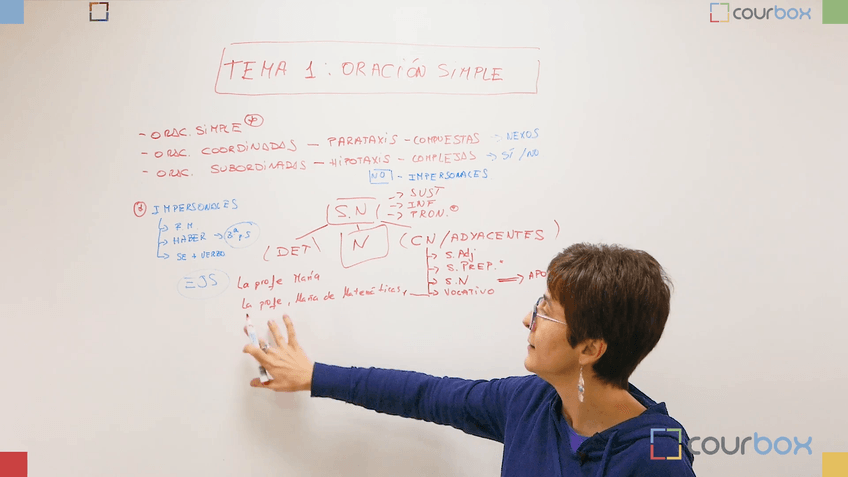 courbox
TEMA 1: ORACIÓN SIMPLE
- ORAC. SIMPLE
- ORAC. COORDINADAS — PARATAXIS - COMPUESTAS : NEXOS
- ORAC. SUBORDINADAS — HIPOTAXIS - COMPLEJAS → SÍ / NO
NO - IMPERSONALES
IMPERSONALES
HABER → 3ª p S
SE + VERBO
S.N
→ SUST
→ INF
→ PRON.
(DET)
N
(CN/ADYACENTES)
S. Adj
S. PREP.
S. N ⇒ APO
VOCATIVO
EJS
La profe María
La profe, María de Matemáticas,
courbox